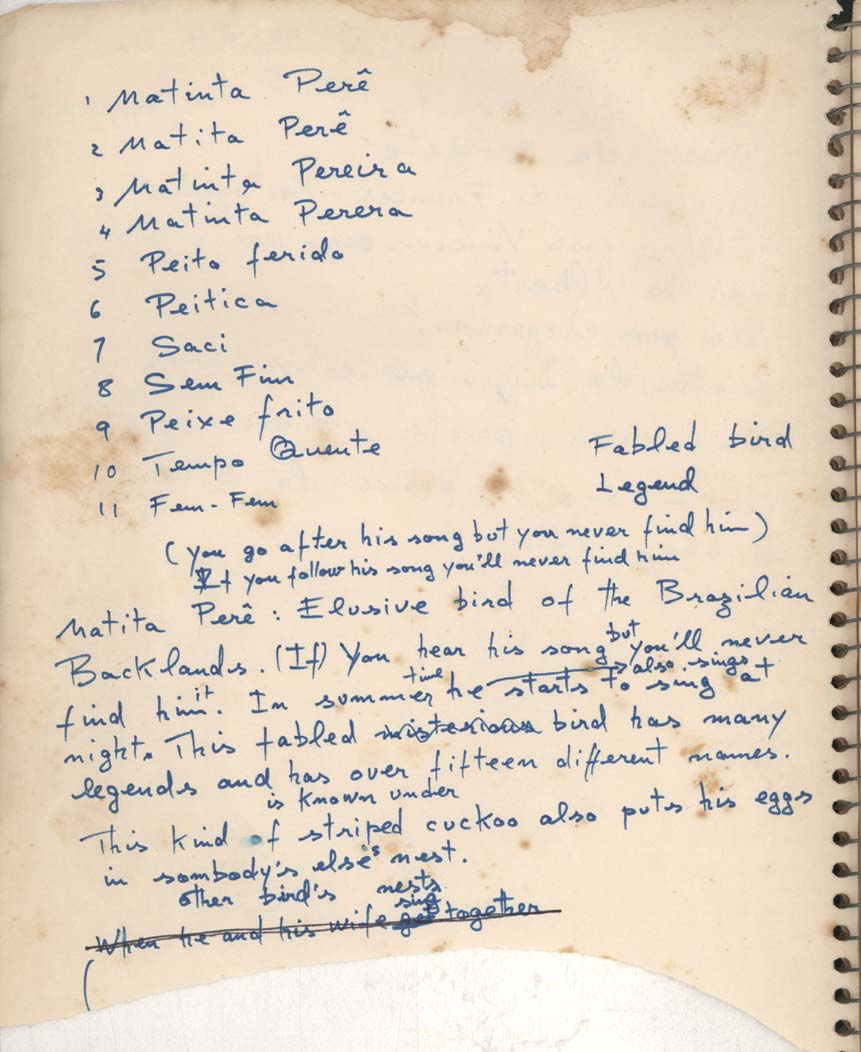 1 Matinta Perê
2 Matita Perê
3 Matinta Pereira
4 Matinta Perera
5 Peito ferido
6 Peitica
7 Saci
8 Sem Fim
9 Peixe frito
10 Tempo Quente
Fabled bird
Legend
11 Fem-Fem
(you go after his song but you never find him)
If you follow his song you'll never find him
Matita Perê : Elusive bird of the Brazilian
Backlands. (If) You hear his song you'll never
but
find him. In summer he starts to sing at
it
time
also sings
night. This fabled misterious bird has many
legends and has over fifteen different names.
is known under
This kind of striped cuckoo also puts his eggs
in sombody's else's nest.
other bird's nests
When he and his wife get together
sing
(